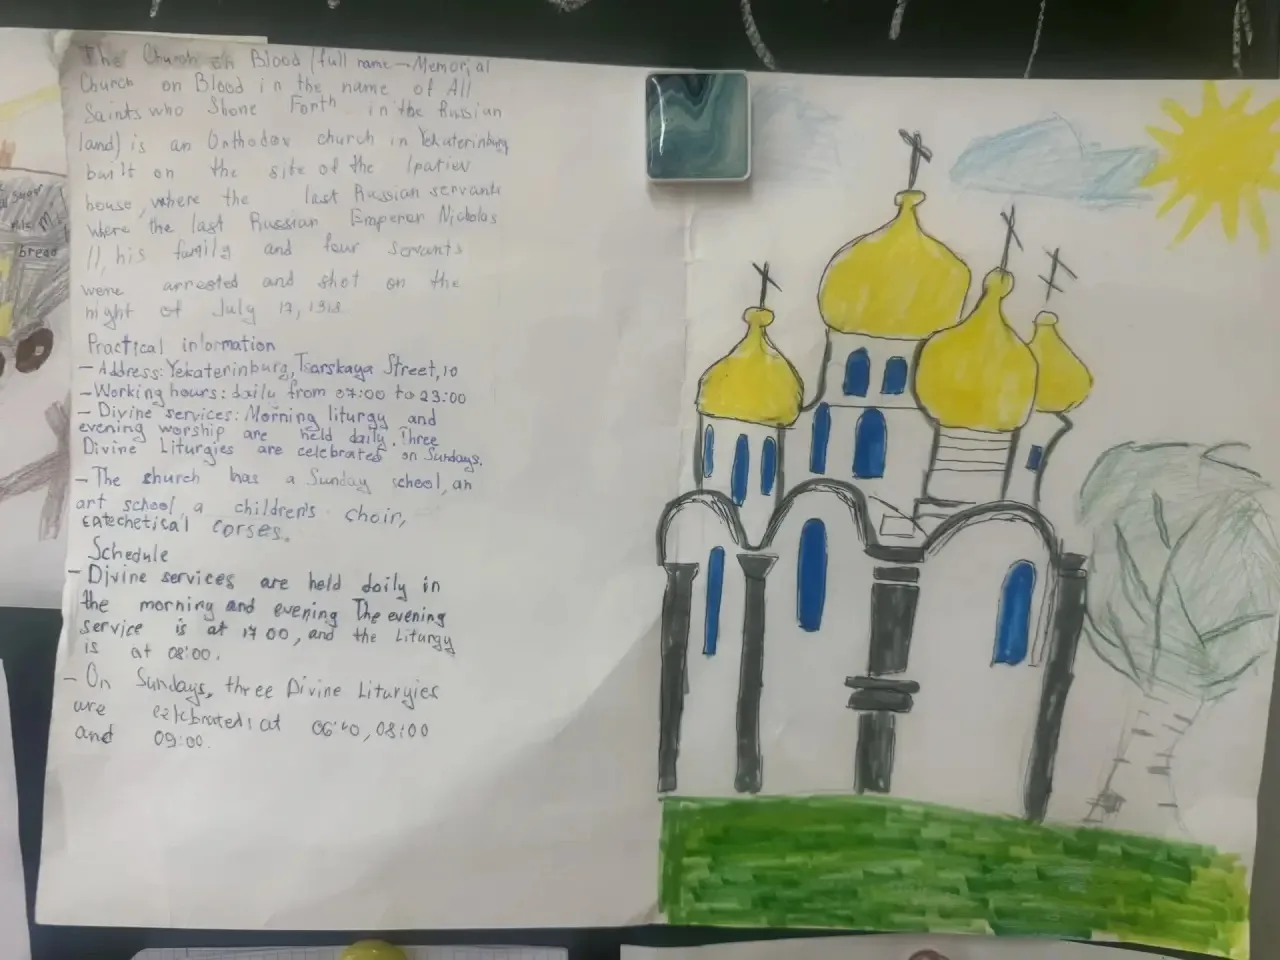 The Church on Blood (full name – Memorial
Church on Blood in the name of All
Saints who Shone Forth in the Russian
land) is an Orthodox church in Yekaterinburg
built on the site of the Ipatiev
house, where the last Russian servants
where the last Russian Emperor Nicholas
II, his family and four servants
were arrested and shot on the
night of July 17, 1918.
Practical information
– Address: Yekaterinburg, Tsarskaya Street, 10
– Working hours: daily from 07:00 to 23:00
– Divine services: Morning liturgy and
evening worship are held daily. Three
Divine Liturgies are celebrated on Sundays.
– The church has a Sunday school, an
art school, a children's choir,
catechetical corses.
Schedule
– Divine services are held daily in
the morning and evening The evening
service is at 17 00, and the Liturgy
is at 08:00.
– On Sundays, three Divine Liturgies
are celebrated: at 06:40, 08:00
and 09:00.
bread